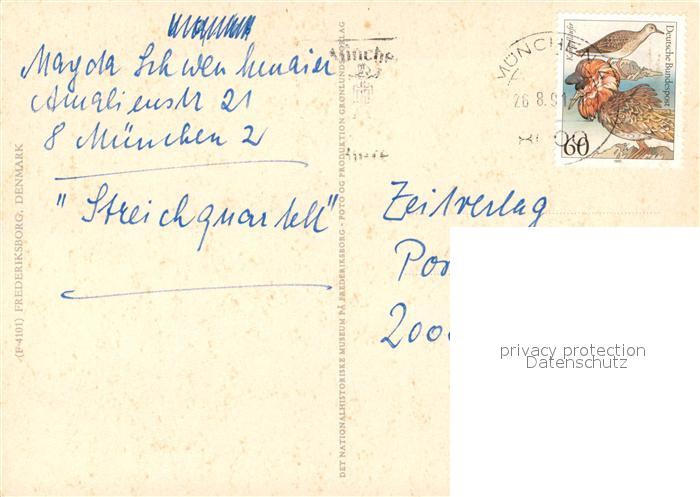 Magda Schwenkmaier
Amalienstr 21
8 München 2
"Streichquartett"
(F-4101) FREDERIKSBORG, DENMARK
DET NATIONALHISTORISKE MUSEUM PÅ FREDERIKSBORG - FOTO OG PRODUKTION GRØNLUNDS FORLAG
Münche
MÜNCHEN
26.8.91
Kampfläufer
Deutsche Bundespost
60
Zeitverlag
Pos
2000
privacy protection
Datenschutz